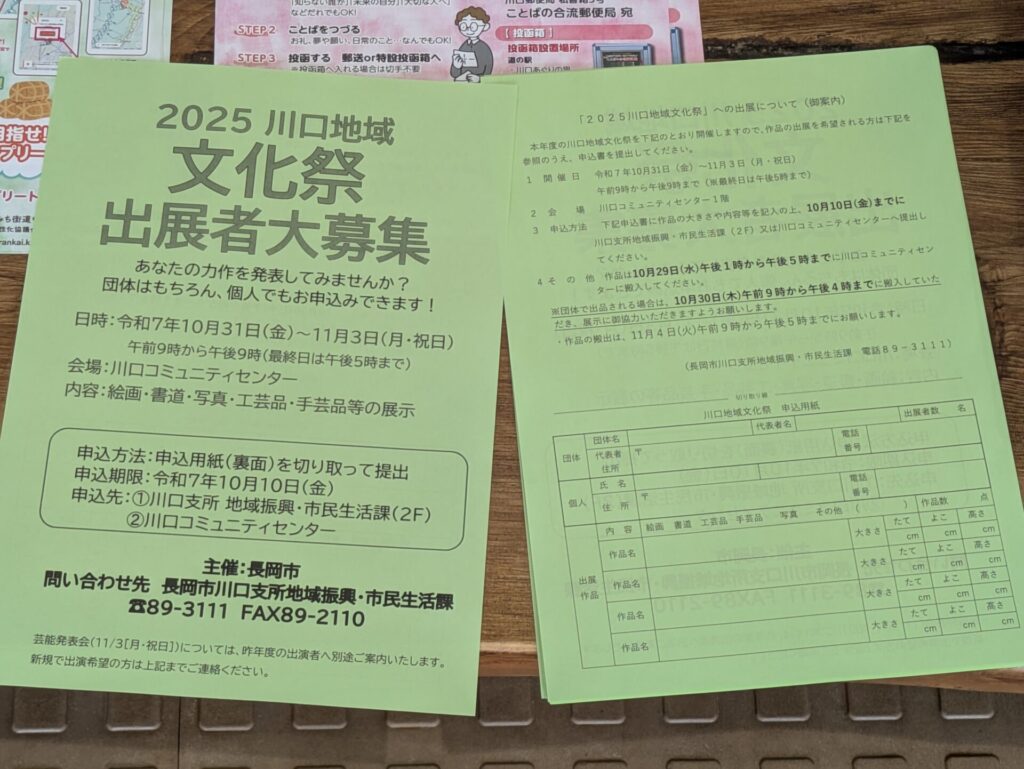 「知らない誰か」「未来の自分」「大切な人へ」
などだれでもOK!
STEP2 ことばをつづる
お礼、夢や願い、日常のこと…なんでもOK!
STEP3 投函する 郵送or特設投函箱へ
※投函箱へ入れる場合は切手不要
ことばの合流郵便局 宛
【投函箱】
投函箱設置場所
道の駅
2025 川口地域
文化祭
出展者大募集
あなたの力作を発表してみませんか?
団体はもちろん、個人でもお申込みできます!
日時:令和7年10月31日(金)~11月3日(月・祝日)
午前9時から午後9時(最終日は午後5時まで)
会場:川口コミュニティセンター
内容:絵画・書道・写真・工芸品・手芸品等の展示
申込方法:申込用紙(裏面)を切り取って提出
申込期限:令和7年10月10日(金)
申込先:①川口支所 地域振興・市民生活課(2F)
②川口コミュニティセンター
主催:長岡市
問い合わせ先 長岡市川口支所地域振興・市民生活課
☎89-3111 FAX89-2110
芸能発表会(11/3[月・祝日])については、昨年度の出演者へ別途ご案内いたします。
新規で出演希望の方は上記までご連絡ください。
「2025川口地域文化祭」への出展について(御案内)
本年度の川口地域文化祭を下記のとおり開催しますので、作品の出展を希望される方は下記を
参照のうえ、申込書を提出してください。
1 開催日 令和7年10月31日(金)~11月3日(月・祝日)
午前9時から午後9時まで(※最終日は午後5時まで)
2 会場 川口コミュニティセンター1階
3 申込方法 下記申込書に作品の大きさや内容等を記入の上、10月10日(金)までに
川口支所地域振興・市民生活課(2F)又は川口コミュニティセンターへ提出し
てください。
4 その他 作品は10月29日(水)午後1時から午後5時までに川口コミュニティセン
ターに搬入してください。
※団体で出品される場合は、10月30日(木)午前9時から午後4時までに搬入していた
だき、展示に御協力いただきますようお願いします。
・作品の搬出は、11月4日(火)午前9時から午後5時までにお願いします。
(長岡市川口支所地域振興・市民生活課 電話89-3111)
切り取り線
川口地域文化祭 申込用紙
団体 団体名 代表者名 出展者数 名
代表者住所 〒 電話番号
個人 氏名
住所 〒 電話番号
出展作品 内容 絵画 書道 工芸品 手芸品 写真 その他( ) 作品数 点
作品名 大きさ たて cm よこ cm 高さ cm
作品名 大きさ たて cm よこ cm 高さ cm
作品名 大きさ たて cm よこ cm 高さ cm
作品名 大きさ たて cm よこ cm 高さ cm